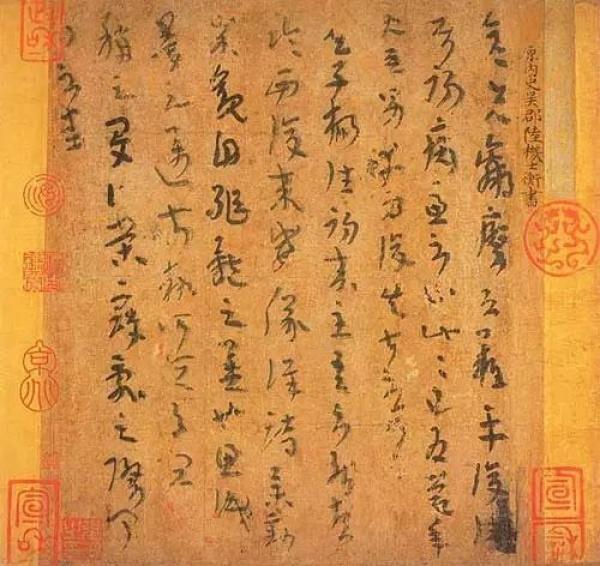 原内史吳郡陸機士衡書
彦先羸瘵恐難平復往屬
初病慮不止此此已為慶承
使唯男幸為復失前憂耳
子楊往初來主吾不能盡
臨西復來威儀詳跱舉動
成觀自軀體之美也思識
量之邁前執所恒有宜
稱之夏伯榮寇亂之際聞
問不悉
宣和